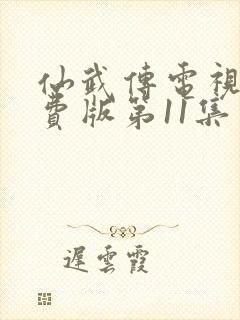 仙武傳電視
費版第11集
遲雲霞